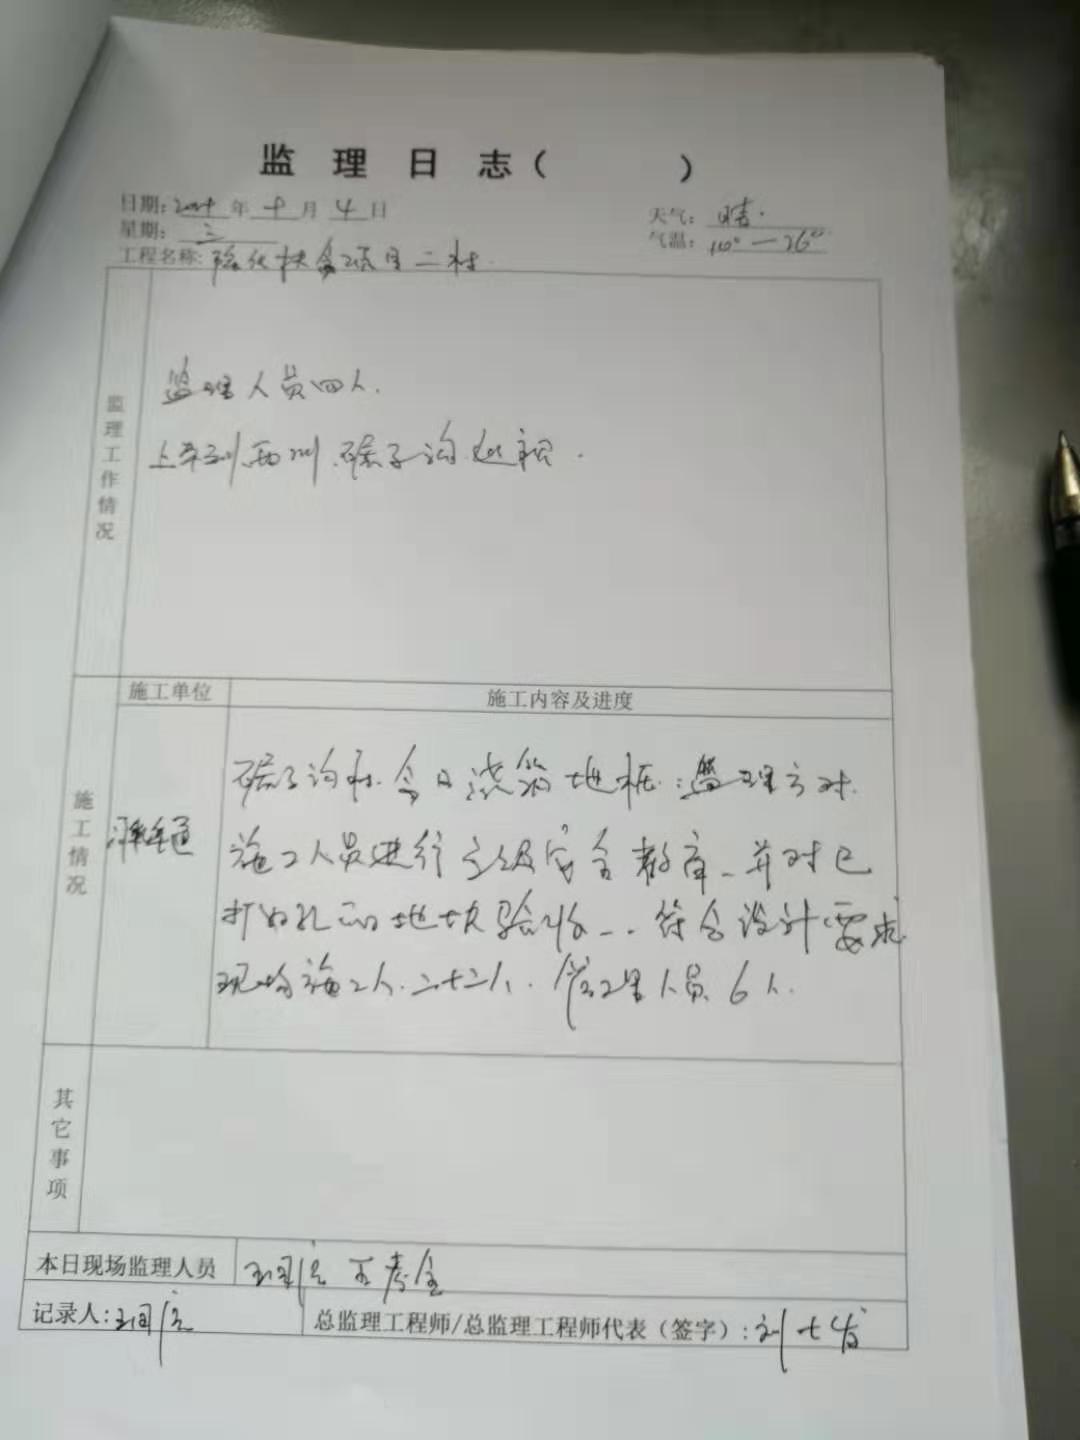 监理日志（ ）
日期： 年 十 月 4 日
天气：晴.
星期：三
气温：10°—26°
工程名称： 项目二标.
监理工作情况
监理人员四人.
巡视.
施工情况
施工单位
施工内容及进度
今日浇筑地桩.监理方对
施工人员进行三级安全教育_并对已
打好孔的地块验收_..符合设计要求
现场施工人.二十二人.管理人员6人.
其它事项
本日现场监理人员
记录人：
总监理工程师/总监理工程师代表（签字）：